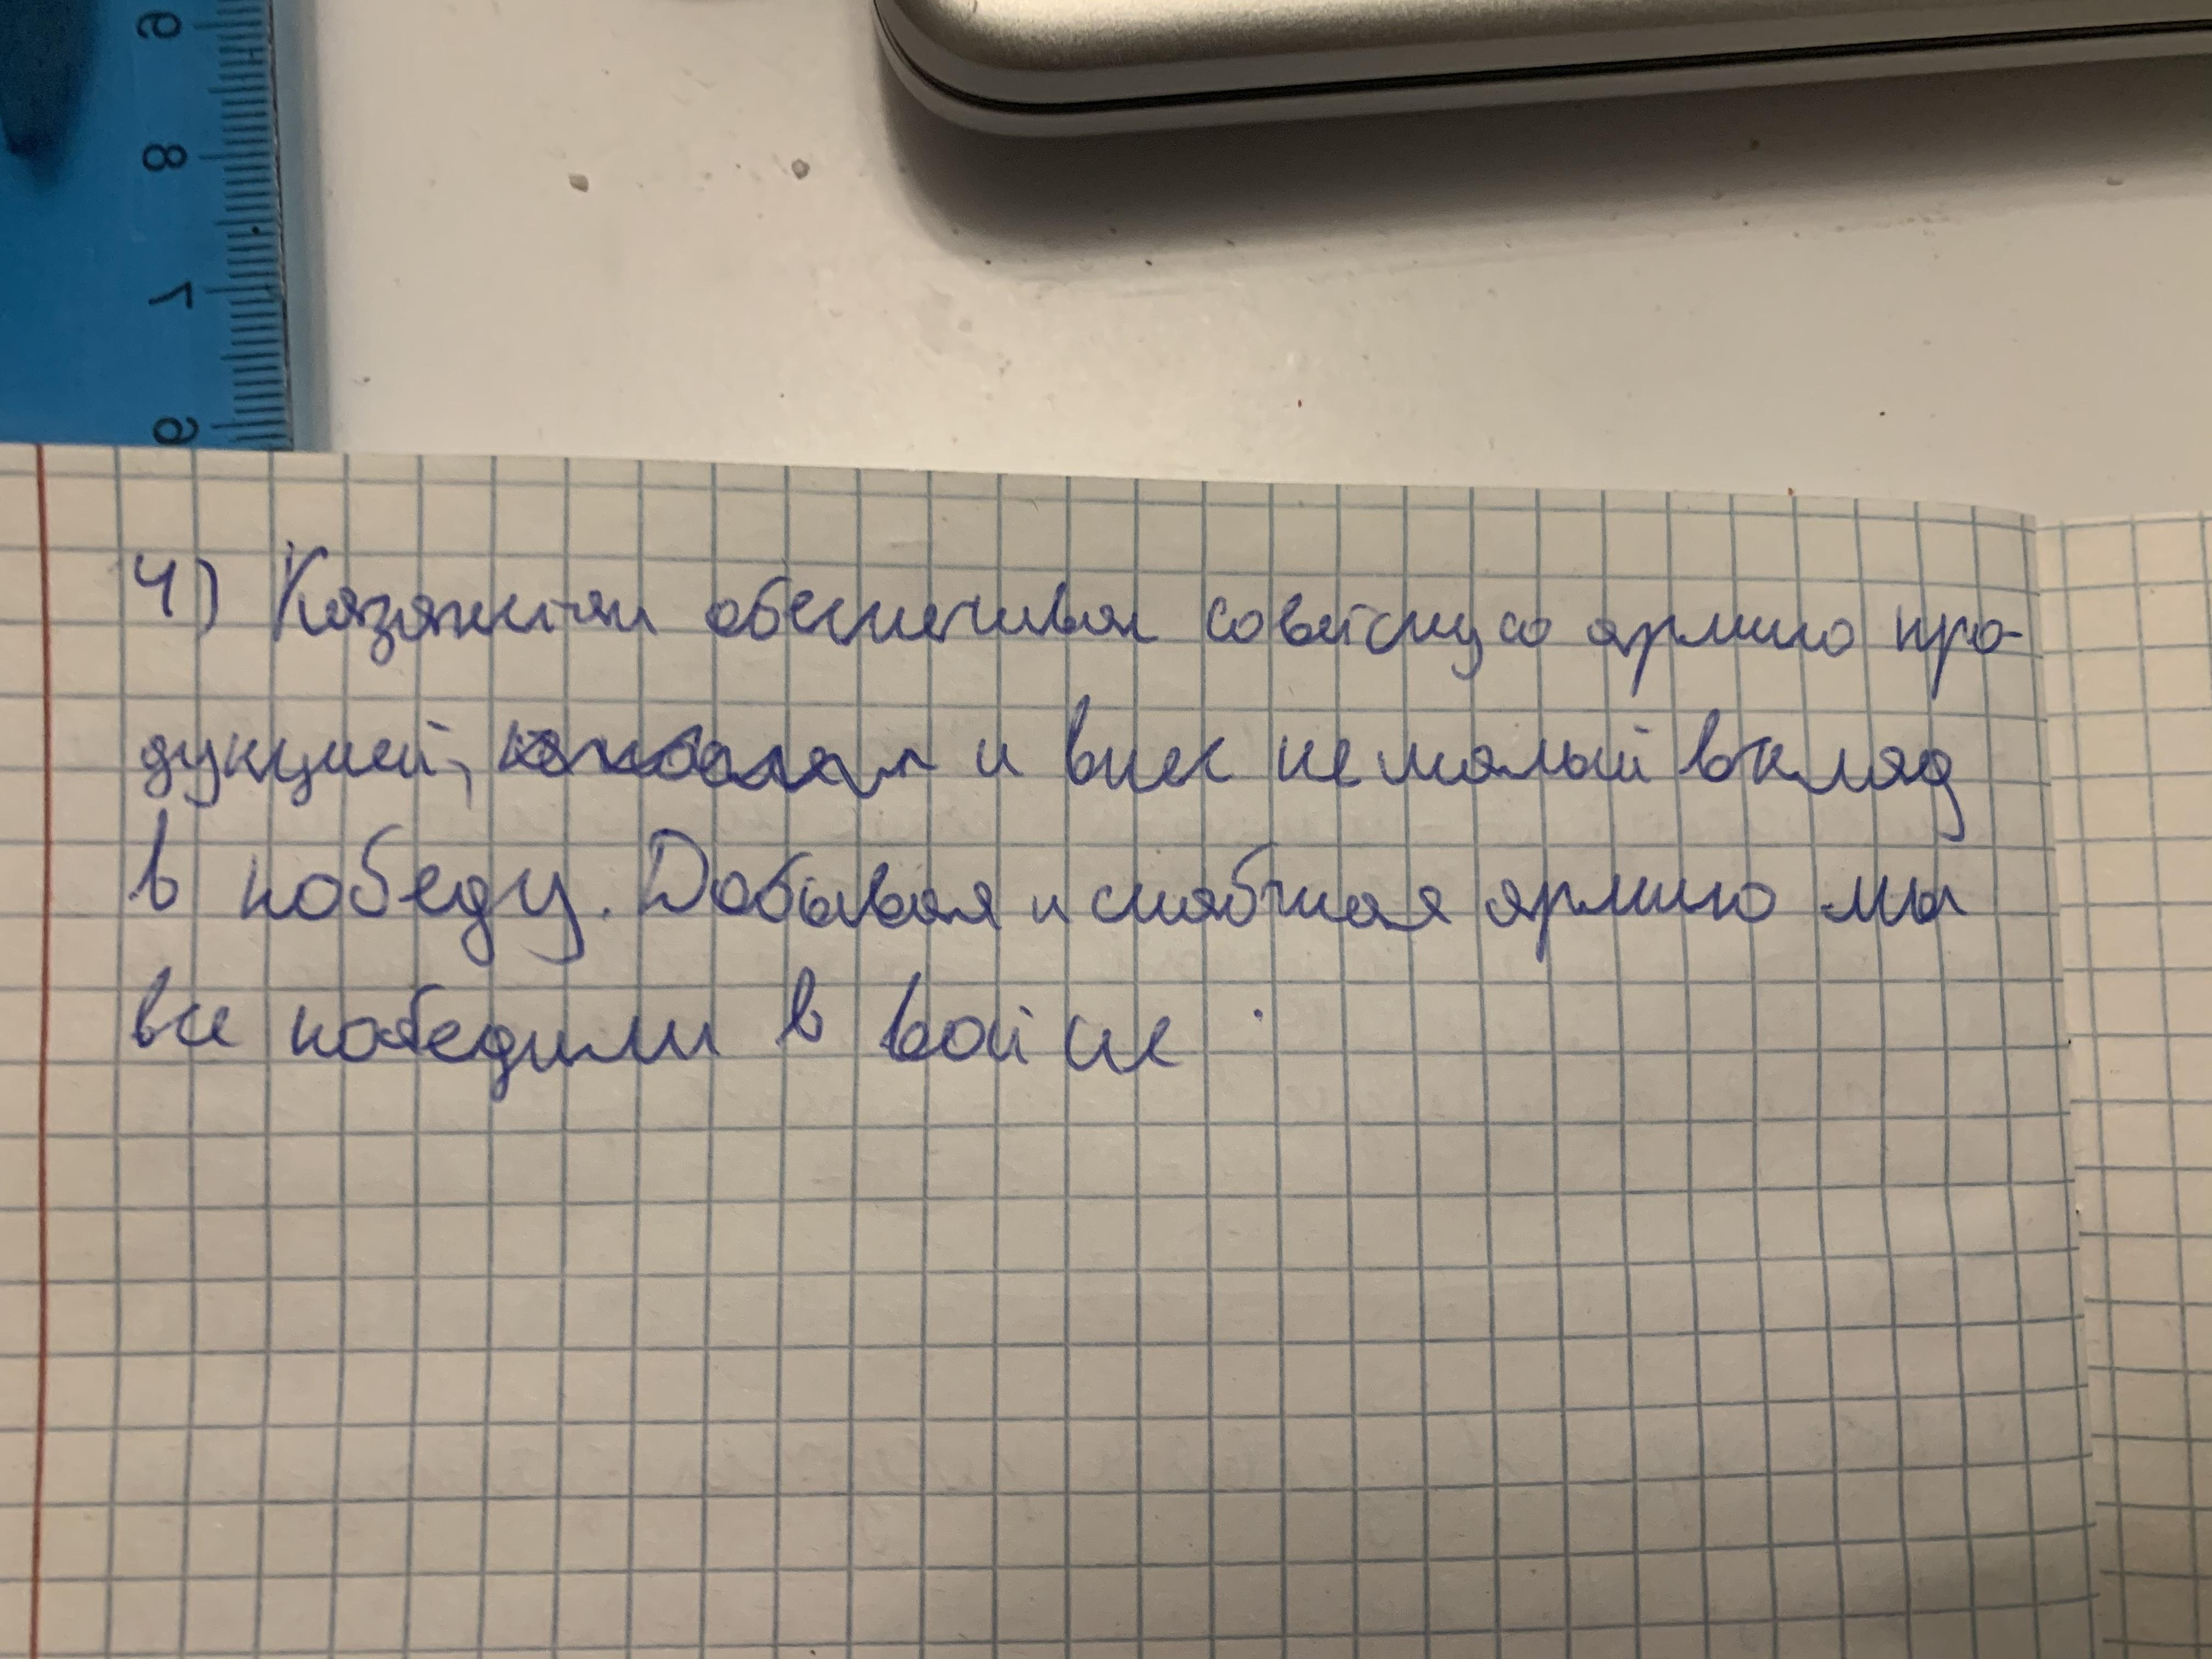 9
8
7
6
4) Казахстан обеспечивал советскую армию про-
дукцией, и внес немалый вклад
в победу. Добывая и снабжая армию мы
все победили в войне.